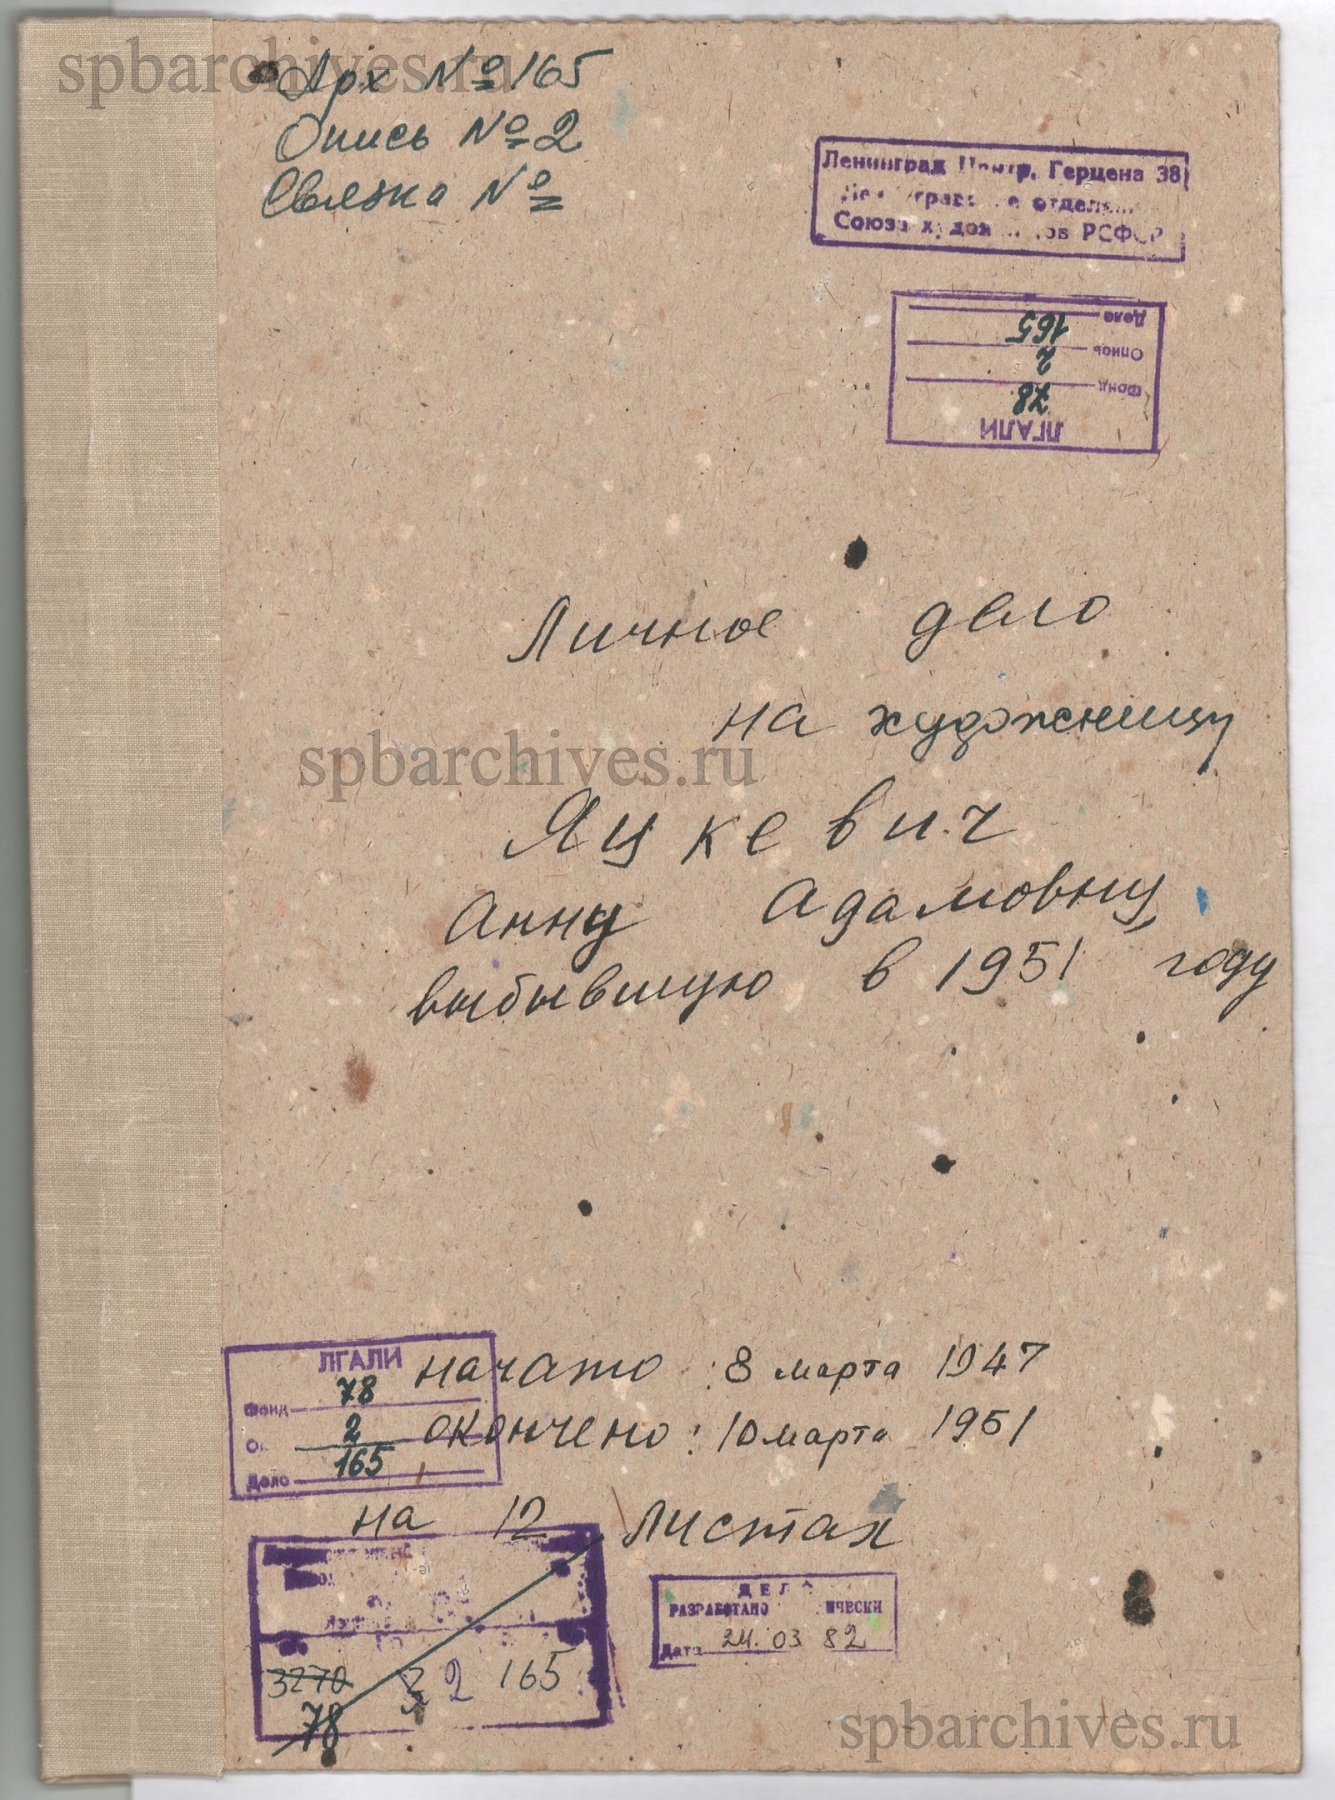 spbarchives.ru
Арх № 165
Опись № 2
Связка №
Ленинград Центр, Герцена 38
отделе
Союза худож ов РСФСР
Дело 165
Опись 2
Фонд 78
ЛГАЛИ
Личное дело
на художницу
spbarchives.ru
Яцкевич
Анну Адамовну,
выбывшую в 1951 году
ЛГАЛИ
Фонд 78
Оп 2
Дело 165
начато : 8 марта 1947
окончено : 10 марта 1951
на 12 листах
3270 2 165
78
ДЕЛО
РАЗРАБОТАНО ИЧЕСКИ
Дата 24. 03 82
spbarchives.ru